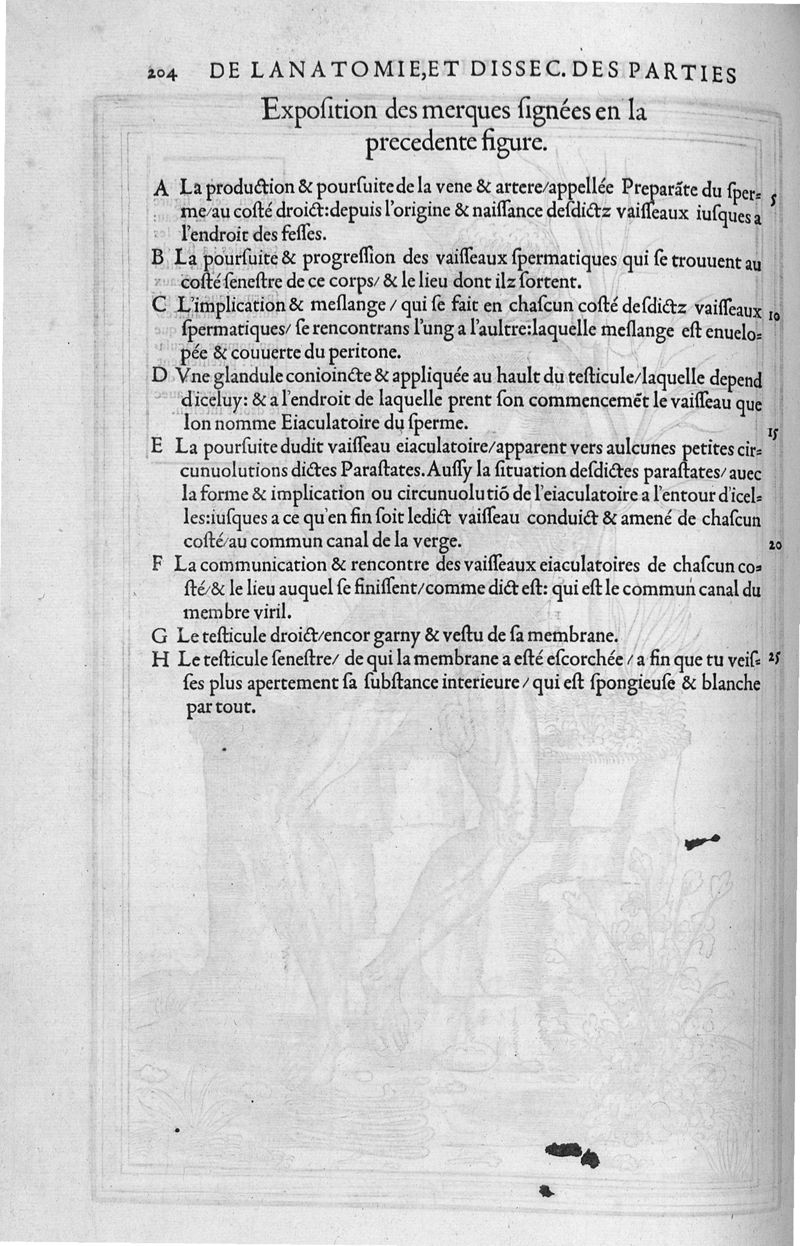 204 DE LANATOMIE,ET DISSEC. DES PARTIES
Expoſition des merques ſignées en la
precedente figure.
A La production & pourſuite de la vene & artere/appellée Preparāte du ſper=
me/au coſté droict:depuis l'origine & naiſſance deſdictz vaiſſeaux iuſques a
l'endroit des feſſes.
5
B La pourſuite & progreſſion des vaiſſeaux ſpermatiques qui ſe trouuent au
coſté ſeneſtre de ce corps/ & le lieu dont ilz ſortent.
C L'implication & meſlange / qui ſe fait en chaſcun coſté deſdictz vaiſſeaux
10
ſpermatiques/ ſe rencontrans l'ung a l'aultre:laquelle meſlange eſt enuelo=
pée & couuerte du peritone.
D Vne glandule conioincte & appliquée au hault du teſticule/laquelle depend
d'iceluy: & a l'endroit de laquelle prent ſon commencemēt le vaiſſeau que
lon nomme Eiaculatoire du ſperme.
15
E La pourſuite dudit vaiſſeau eiaculatoire/apparent vers aulcunes petites cir=
cunuolutions dictes Paraſtates. Auſſy la ſituation deſdictes paraſtates/ auec
la forme & implication ou circunuolutiō de l'eiaculatoire a l'entour d'icel=
les:iuſques a ce qu'en fin ſoit ledict vaiſſeau conduict & amené de chaſcun
coſté/au commun canal de la verge.
20
F La communication & rencontre des vaiſſeaux eiaculatoires de chaſcun co=
ſté/& le lieu auquel ſe finiſſent/comme dict eſt: qui eſt le commun canal du
membre viril.
G Le teſticule droict/encor garny & veſtu de ſa membrane.
H Le teſticule ſeneſtre/ de qui la membrane a eſté eſcorchée / a fin que tu veiſ=
25
ſes plus apertement ſa ſubſtance interieure / qui eſt ſpongieuſe & blanche
par tout.